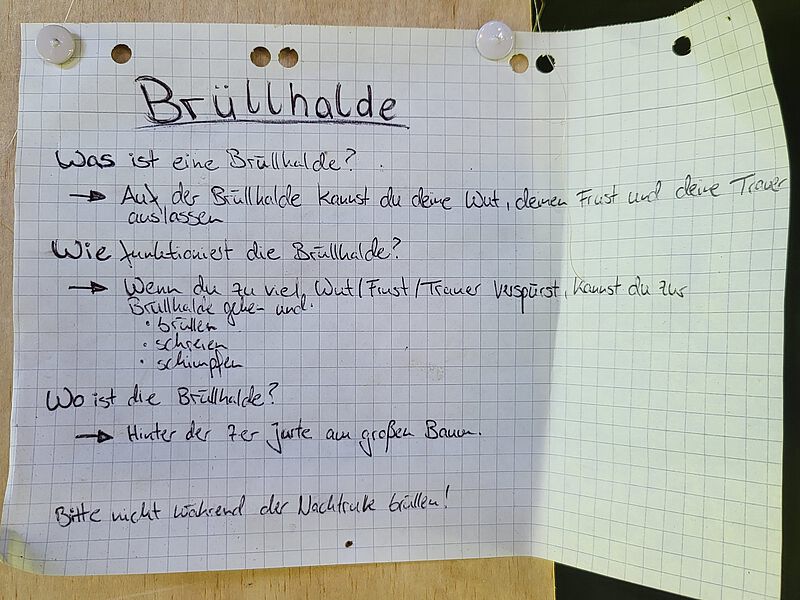 Brüllhalde
Was ist eine Brüllhalde?
→ Auf der Brüllhalde kannst du deine Wut, deinen Frust und deine Trauer
auslassen
Wie funktioniest die Brüllhalde?
→ Wenn du zu viel Wut/Frust/Trauer verspürst, kannst du zur
Brüllhalde gehen und:
• brüllen
• schreien
• schimpfen
Wo ist die Brüllhalde?
→ Hinter der 7er Jurte am großen Baum.
Bitte nicht während der Nachtruhe brüllen!